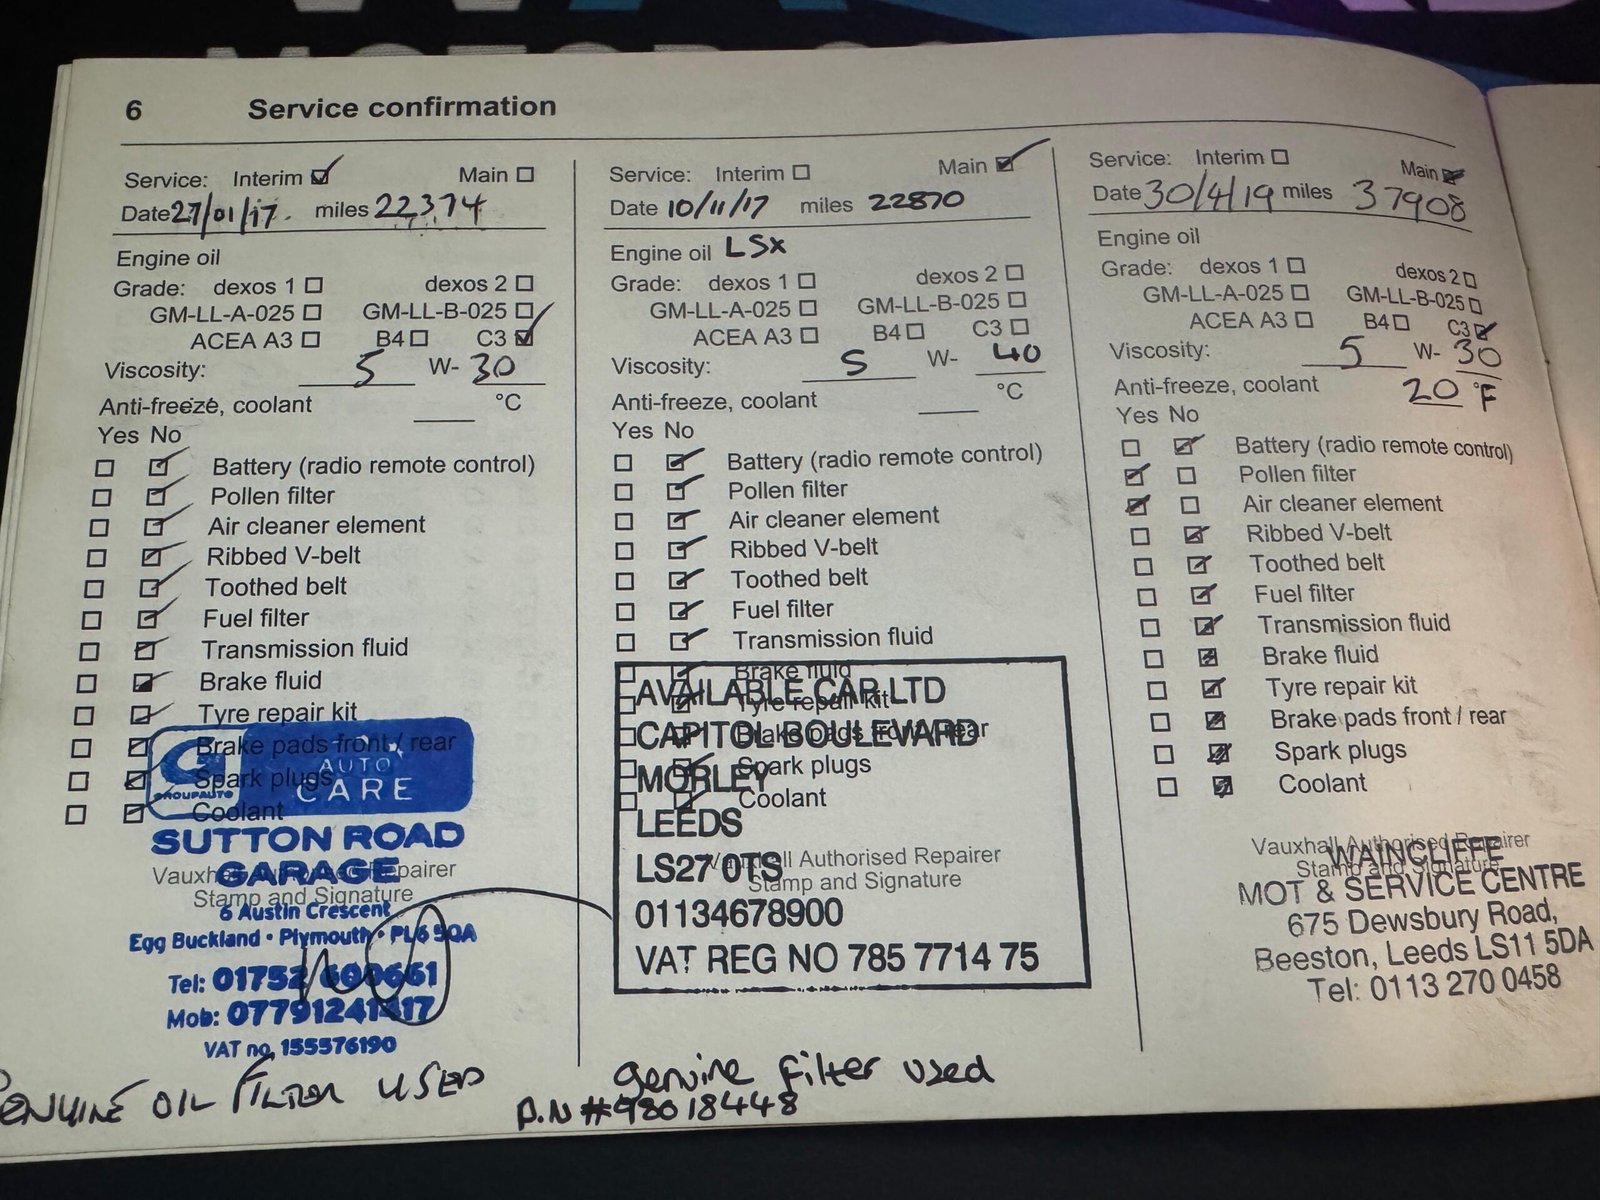 6 Service confirmation
Service: Interim Main
Date 27/01/17. miles 22,374
Engine oil
Grade: dexos 1 dexos 2
GM-LL-A-025 GM-LL-B-025
ACEA A3 B4 C3
Viscosity: 5 W- 30
Anti-freeze, coolant °C
Yes No
Battery (radio remote control)
Pollen filter
Air cleaner element
Ribbed V-belt
Toothed belt
Fuel filter
Transmission fluid
Brake fluid
Tyre repair kit
Brake pads front / rear
Spark plugs
Coolant
GROUPAUTO
AUTO
CARE
SUTTON ROAD
GARAGE
Vauxhall Authorised Repairer
Stamp and Signature
6 Austin Crescent
Egg Buckland • Plymouth • PL6 5QA
Tel: 01752 600661
Mob: 07791241417
VAT no. 155576190
GENUINE OIL FILTER USED
Service: Interim Main
Date 10/11/17 miles 22870
Engine oil LSX
Grade: dexos 1 dexos 2
GM-LL-A-025 GM-LL-B-025
ACEA A3 B4 C3
Viscosity: 5 W- 40
Anti-freeze, coolant °C
Yes No
Battery (radio remote control)
Pollen filter
Air cleaner element
Ribbed V-belt
Toothed belt
Fuel filter
Transmission fluid
Brake fluid
Tyre repair kit
Brake pads front / rear
Spark plugs
Coolant
AVAILABLE CAR LTD
CAPITOL BOULEVARD
MORLEY
LEEDS
LS27 0TS
01134678900
VAT REG NO 785 7714 75
Vauxhall Authorised Repairer
Stamp and Signature
genuine filter used
P.N #98018448
Service: Interim Main
Date 30/4/19 miles 37908
Engine oil
Grade: dexos 1 dexos 2
GM-LL-A-025 GM-LL-B-025
ACEA A3 B4 C3
Viscosity: 5 W- 30
Anti-freeze, coolant 20 °F
Yes No
Battery (radio remote control)
Pollen filter
Air cleaner element
Ribbed V-belt
Toothed belt
Fuel filter
Transmission fluid
Brake fluid
Tyre repair kit
Brake pads front / rear
Spark plugs
Coolant
Vauxhall Authorised Repairer
Stamp and Signature
WAINCLIFFE
MOT & SERVICE CENTRE
675 Dewsbury Road,
Beeston, Leeds LS11 5DA
Tel: 0113 270 0458